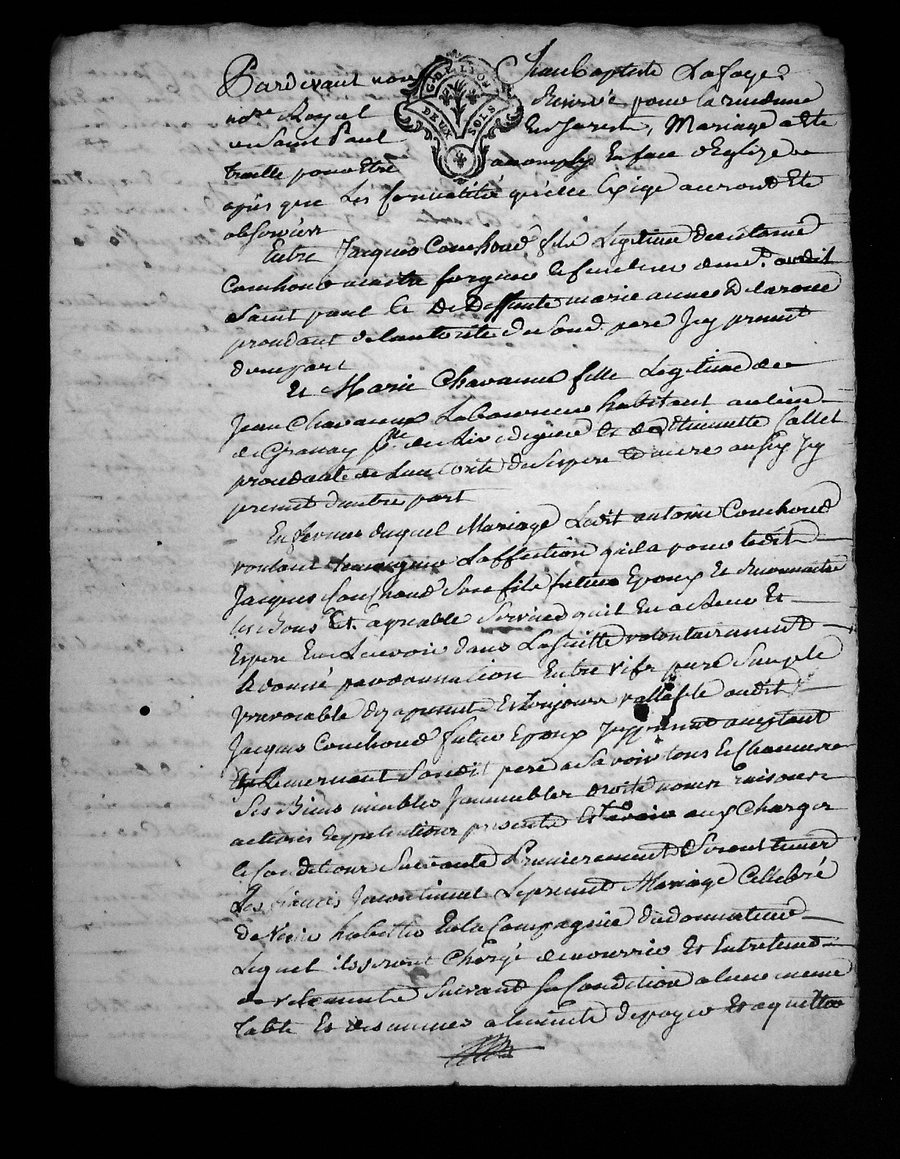 Pardevant nous Jean Baptiste Lafaye
no.re Royal Reservé pour la residence
en Saint Paul En Jarest, Mariage a Eté
traitte pour Etre accomply En face d'Eglize
apres que Les formalité qu'elle Exige auront Eté
observées
G. DE LYON
DEUX SOLS
Entre Jacques Couchoud fils Legitime de
Couchoud maitre forgeur audit
Saint paul Et De Deffunte marie anne Delaroue
procedant de L'autorité du Sond. pere Jcy present
d'une part
Et Marie Chavanne fille Legitime de
Jean Chavanne Laboureur habitant au lieu
de Granay p.sse de et de Etiennette Callet
procedante de L'autorité de Ses pere Et mere aussy Jcy
present d'autre part
En faveur duquel Mariage Ledit antoine Couchoud
voulant temoigner L'affection qu'il a pour ledit
Jacques Couchoud Son fils futur Epoux Et reconnaitre
les Bons Et agreable Services qu'il En a Receu Et
Espere En Recevoir dans La Suitte volontairement
A donné par donnation Entre vifs pure Simple
Jrrevocable des a present Et toujours vallable audit
Jacques Couchoud futur Epoux Jcy present acceptant
Et Remerciant Sondit pere a Savoir tous Et Chacuns
Ses Biens meubles Jmmeubles droits noms raisons
actions Et pretentions presents Et avenir aux Charges
Et Conditions Suivante Premierement Seront tenus
Les fiancés Jncontinent Le present Mariage Cellebré
de Venir habitter En la Compagnie du donnateur
Lequel ils Seront Chargé de nourrir Et Entretenir
de vetements Suivant Sa Condition a leur meme
table Et de Son me a la suitte de payer Et aquitter